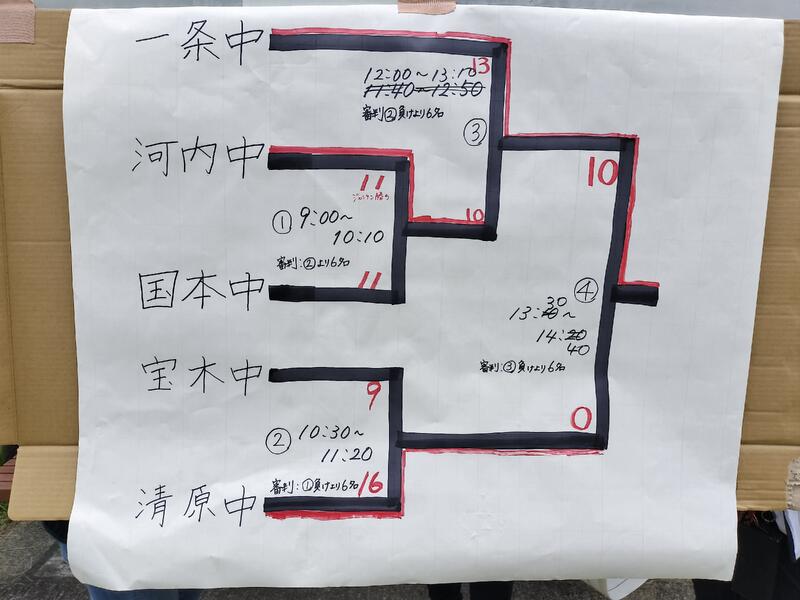 一条中
13
12:00～13:10
11:40-12:50
審判②負けより6名
③
河内中
11
ジャンケン勝ち
10
10
① 9:00～
10:10
審判:②より6名
国本中
11
④
30
13:20～
14:20
40
審判:③負けより6名
宝木中
9
② 10:30～
11:20
0
審判:①負けより6名
16
清原中